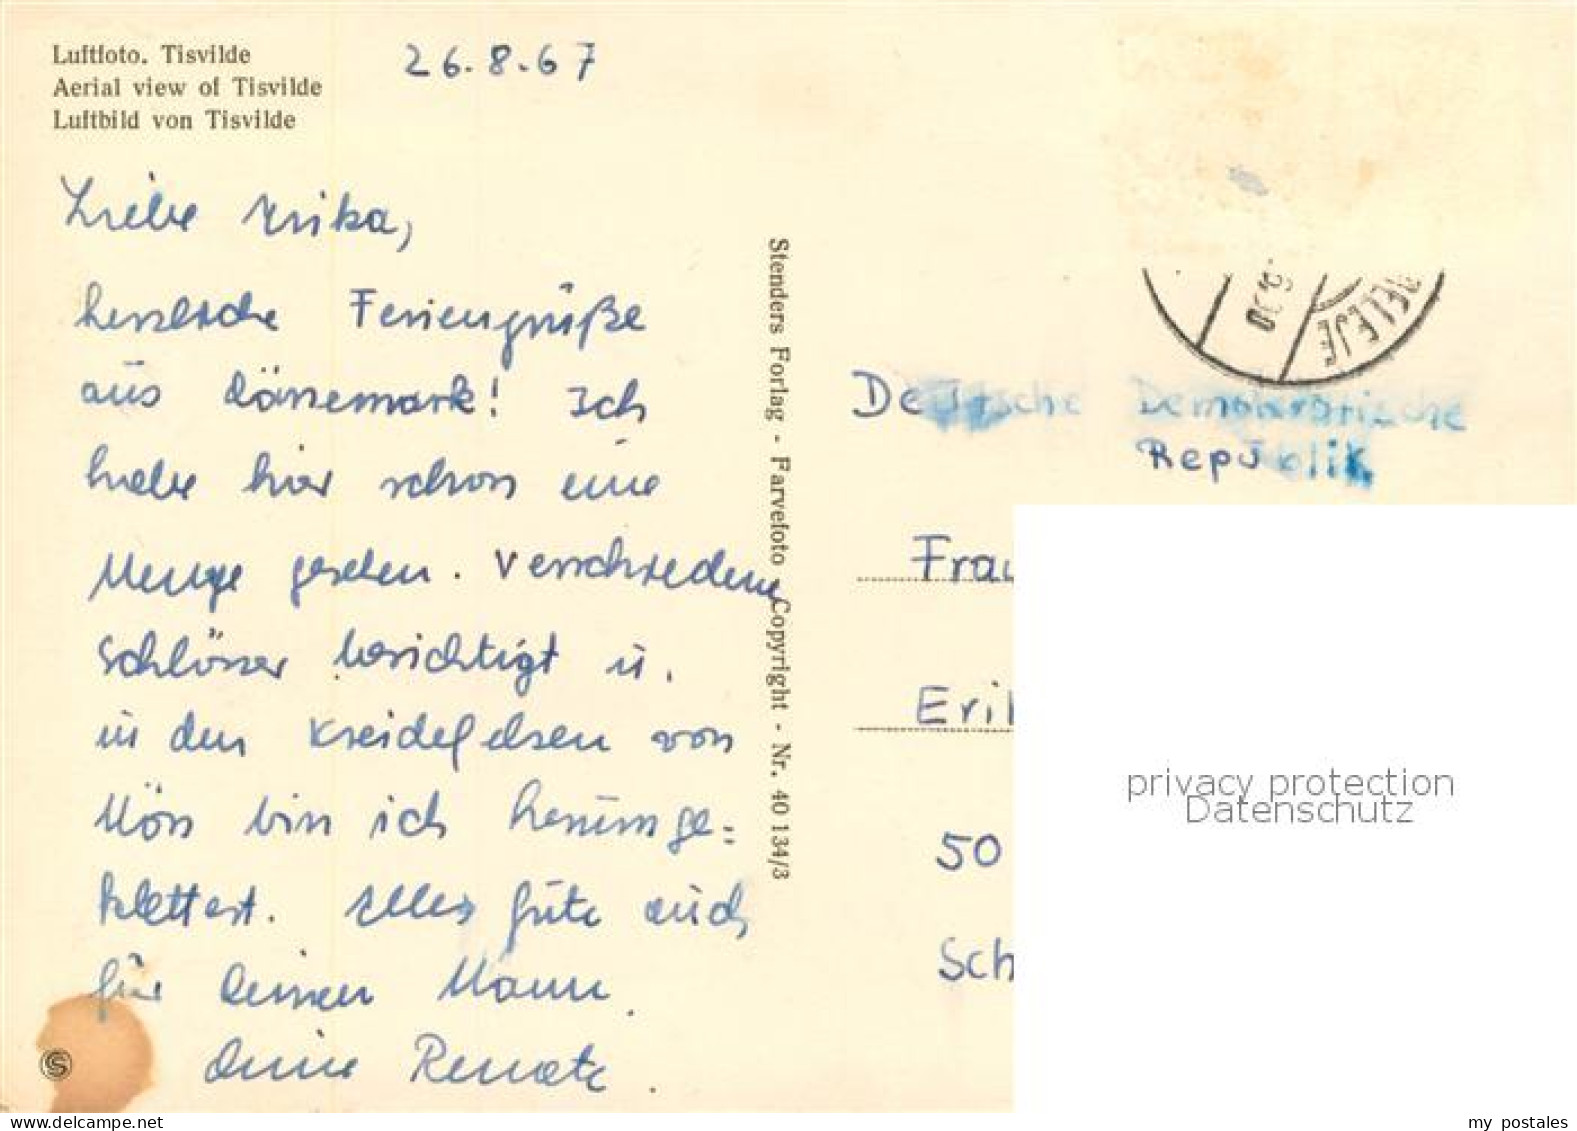 Luftfoto. Tisvilde
Aerial view of Tisvilde
Luftbild von Tisvilde
26.8.67
Liebe Erika,
herzliche Feriengrüße
aus Dänemark! Ich
habe hier schon eine
Menge gesehen. Verschiedene
Schlösser besichtigt u.
in den Kreidefelsen von
Mön bin ich herumge=
klettert. Alles Gute auch
für Deinen Mann.
Deine Renate.
Stenders Forlag - Farvefoto Copyright - Nr. 40 134/3
ELEJE
Deutsche Demokratische
Republik
Frau
Erik
50
Sch
privacy protection
Datenschutz
S
my postales